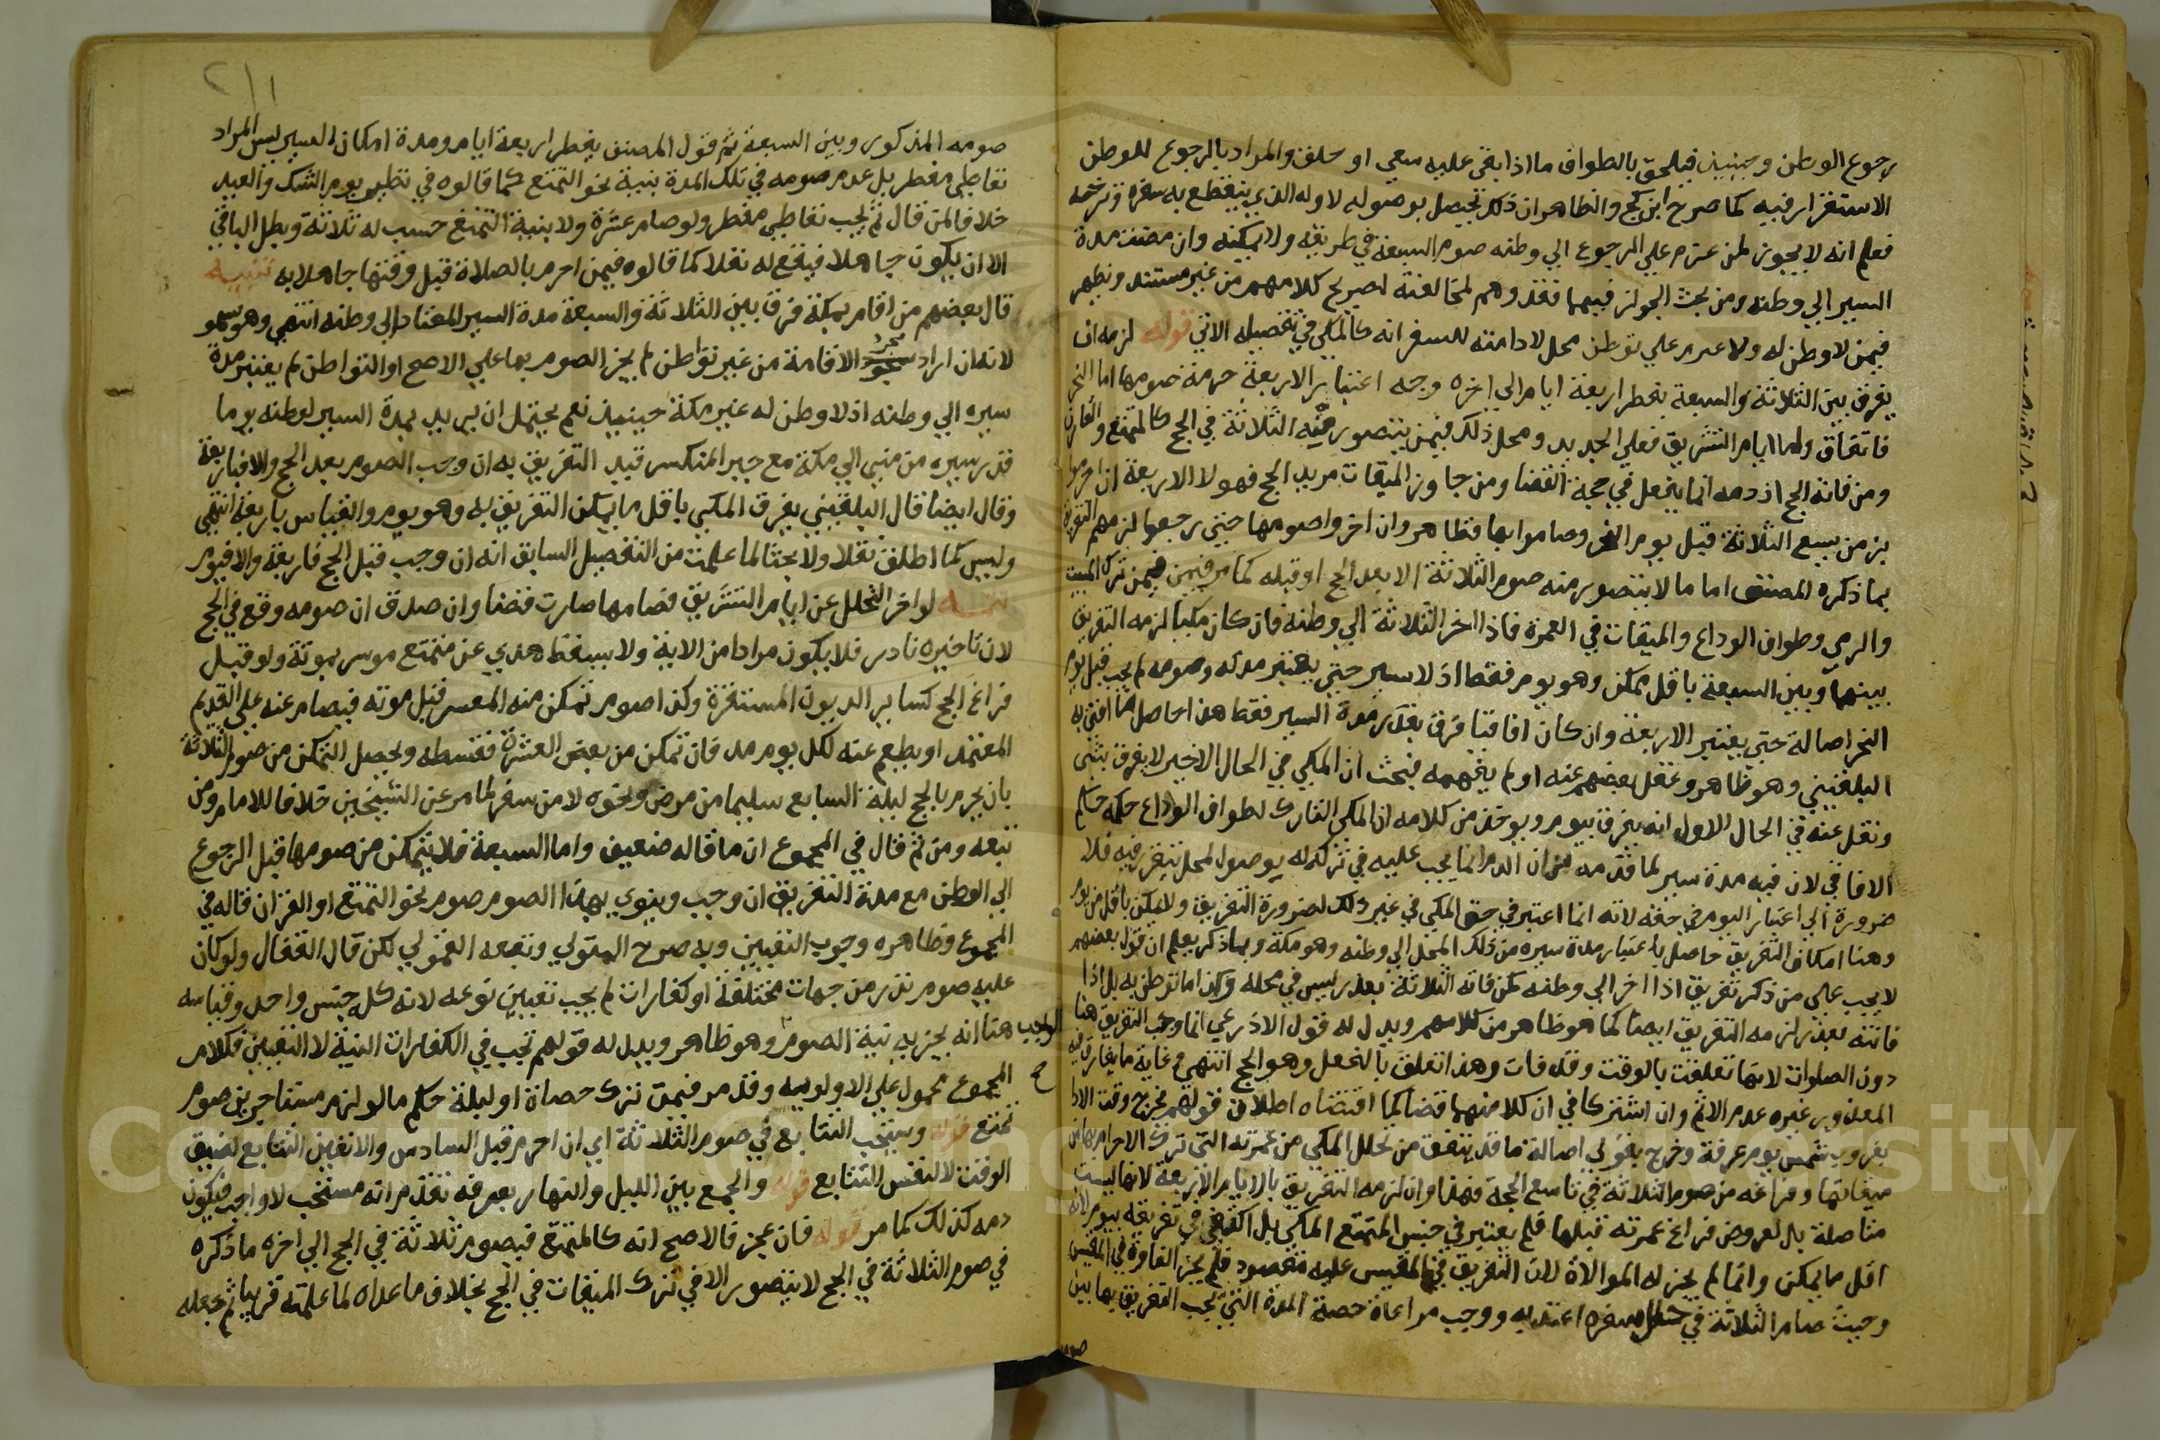 رجوع الوطن وحينئذ فيلحق بالطواف ما اذا بقي عليه سعي او حلق والمراد بالرجوع للوطن
الاستقرار فيه كما صرح ابن كج والظاهر ان ذلك يحصل بوصوله لاوله الذي ينقطع به سفره وترخصه
فعلم انه لا يجوز لمن عزم علي الرجوع الي وطنه صوم السبعة في طريقه ولا بمكة وان مضت مدة
السير الي وطنه ومن بحث الجواز فيهما فقد وهم لمخالفته لصريح كلامهم من غير مستند ويظهر
فيمن لا وطن له ولا عزم علي توطن محل لادامته للسفر انه كالمكي في تفصيله الاتي قوله لزمه ان
يفرق بين الثلاثة والسبعة بفطر اربعة ايام الي اخره وجه اعتبار الاربعة حرمة صومها اما النحر
فاتفاق واما ايام التشريق فعلي الجديد ومحل ذلك فيمن يتصور منه الثلاثة في الحج كالمتمتع والقارن
ومن فاته الحج اذ دمه انما يفعل في حجة القضا ومن جاوز الميقات مريد الحج فهولا الاربعة ان احرموا
بزمن يسع الثلاثة قبل يوم النحر وصاموا بها فظاهر وان اخروا صومها حتي رجعوا لزمهم التفريق
بما ذكره المصنف اما ما لا يتصور منه صوم الثلاثة الا بعد الحج او قبله كما مر فيمن ترك المبيت
والرمي وطواف الوداع والميقات في العمرة فاذا اخر الثلاثة الي وطنه فان كان مكيا لزمه التفريق
بينها وبين السبعة باقل ممكن وهو يوم فقط اذ لا سير حتي يعتبر مدته وصومه لم يجب قبل يوم
النحر اصالة حتي يعتبر الاربعة وان كان افاقيا فرق بقدر مدة السير فقط هذا حاصل ما افتي به
البلقيني وهو ظاهر وغفل بعضهم عنه او لم يفهمه فبحث ان المكي في الحال الاخير لا يفرق بشي
ونقل عنه في الحال الاول انه يفرق بيوم ويوخذ من كلامه ان المكي التارك لطواف الوداع حكمه حكم
الافاقي لان فيه مدة سير لما قدمه من ان الدم انما يجب عليه في تركه له بوصوله لمحل يتقرر فيه فلا
ضرورة الي اعتبار اليوم في حقه لانه انما اعتبر في حق المكي في غير ذلك لضرورة التفريق ولا يمكن باقل من يوم
وهنا امكان التفريق حاصل باعتبار مدة سيره من ذلك المحل الي وطنه وهو مكة وبما ذكر يعلم ان قول بعضهم
لا يجب علي من ذكر تفريق اذا اخر الي وطنه لمن فاته الثلاثة بعذر ليس في محله وكذا ما توطن به بل اذا
فاتته بعذر لزمه التفريق ايضا كما هو ظاهر من كلامهم ويدل له قول الاذرعي انما وجب التفريق هنا
دون الصلوات لانها تعلقت بالوقت وقد فات وهذا تعلق بالفعل وهو الحج انتهي وغاية ما يفارق فيه
المعذور غيره عدم الاثم وان اشتركا في ان كلا منهما قضا كما اقتضاه اطلاق قولهم يخرج وقت الادا
بغروب شمس يوم عرفة وخرج بقولي اصالة ما قد يتفق من تحلل المكي من عمرته التي ترك الاحرام بها من
ميقاتها وفراغه من صوم الثلاثة في تاسع الحجة فهذا وان لزمه التفريق بالايام الاربعة لانها ليست
متاصلة بل لعروض فراغ عمرته قبلها فلم يعتبر في جنس المتمتع المكي بل اكتفي في تفريقه بيوم لانه
اقل ما يمكن وانما لم يجز له الموالاة لان التفريق في المقيس عليه مقصود فلم يجز التفاوت في المقيس
وحيث صام الثلاثة في سفره اعتد به ووجب مراعاة حصة المدة التي يجب التفريق بها بين
صومه
٢١١
صومه المذكور وبين السبعة ثم قول المصنف بفطر اربعة ايام ومدة امكان السير ليس المراد
تعاطي مفطر بل عدم صومه في تلك المدة بنية نحو التمتع كما قالوه في نظير يوم الشك والعيد
خلافا لمن قال ثم يجب تعاطي مفطر ولو صام عشرة ولا بنية التمتع حسب له ثلاثة وبطل الباقي
الا ان يكون جاهلا فيقع له نفلا كما قالوه فيمن احرم بالصلاة قبل وقتها جاهلا به تنبيه
قال بعضهم من اقام بمكة فرق بين الثلاثة والسبعة مدة السير المعتاد الي وطنه انتهي وهو سهو
لانه ان اراد مجرد الاقامة من غير توطن لم يجز الصوم بها علي الاصح او التوطن لم يعتبر مدة
سيره الي وطنه اذ لا وطن له غير مكة حينئذ نعم يحتمل ان يريد بمدة السير لوطنه يوما
قدر سيره من مني الي مكة مع جبر المنكسر قيد التفريق به ان وجب الصوم بعد الحج والا فباربعة
وقال ايضا قال البلقيني يفرق المكي باقل ما يمكن التفريق به وهو يوم والقياس باربعة انتهي
وليس كما اطلق نقلا ولا بحثا لما علمت من التفصيل السابق انه ان وجب قبل الحج فاربعة والا فيوم
تنبيه لو اخر التحلل عن ايام التشريق فصامها صارت قضا وان صدق ان صومه وقع في الحج
لان تاخيره نادر فلا يكون مرادا من الاية ولا يسقط هدي عن متمتع موسر بموته ولو قبل
فراغ الحج كساير الديون المستقرة وكذا صوم تمكن منه المعسر قبل موته فيصام عنه علي القديم
المعتمد او يطعم عنه لكل يوم مد فان تمكن من بعض العشرة فقسطه ويحصل التمكن من صوم الثلاثة
بان يحرم بالحج ليلة السابع سليما من مرض ونحوه لا من سفر لما مر عن الشيخين خلافا للامام ومن
تبعه ومن ثم قال في المجموع ان ما قاله ضعيف واما السبعة فلا يتمكن من صومها قبل الرجوع
الي الوطن مع مدة التفريق ان وجب وينوي بهذا الصوم صوم نحو التمتع او القران قاله في
المجموع وظاهره وجوب التعيين وبه صرح المتولي وتبعه القمولي لكن قال القفال ولو كان
عليه صوم نذر من جهات مختلفة او كفارات لم يجب تعيين نوعه لانه كله جنس واحد وقياسه
هنا انه يجزيه نية الصوم الواجب وهو ظاهر ويدل له قولهم تجب في الكفارات النية لا التعيين فكلام
المجموع محمول علي الاولوية وقد مر فيمن ترك حصاة او ليلة حكم ما لو لزم مستاجرين صوم
تمتع قوله ويستحب التتابع في صوم الثلاثة اي ان احرم قبل السادس والا تعين التتابع لضيق
الوقت لا لنفس التتابع قوله والجمع بين الليل والنهار بعرفه تقدم انه مستحب لا واجب فيكون
دمه كذلك كما مر قوله فان عجز فالاصح انه كالمتمتع فيصوم ثلاثة في الحج الي اخره ما ذكره
في صوم الثلاثة في الحج لا يتصور الا في ترك الميقات في الحج بخلاف ما عداه لما علمته قريبا ثم جعله